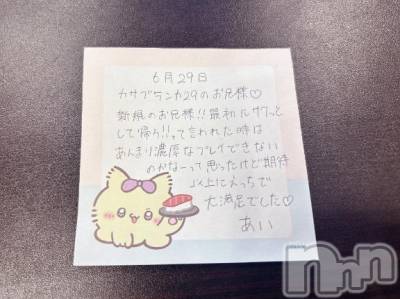 6月29日
カサブランカ29のお兄様♡
新規のお兄様!!最初にサクッと
して帰り!!って言われた時は
あんまり濃厚なプレイできない
のかなーって思ったけど期待
以上にえっちで
大満足でした♡
あい
Nnn